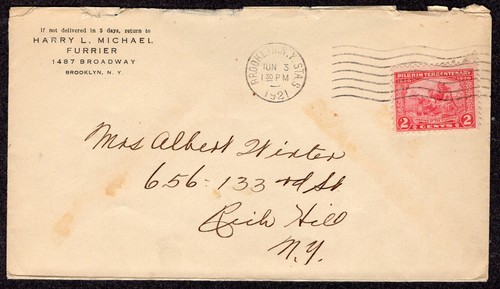 If not delivered in 5 days, return to
HARRY L. MICHAEL
FURRIER
1487 BROADWAY
BROOKLYN, N. Y.
BROOKLYN, N.Y. STA.S
JUN 3
1 30 PM
1921
PILGRIM TERCENTENARY
2 CENTS 2
Mrs Albert Winter
656-133rd St
Rich Hill
N.Y.